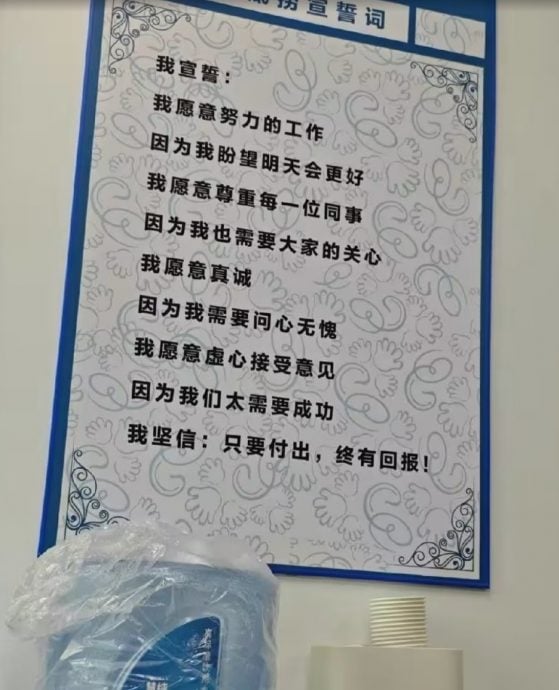 捞宣誓词
我宣誓：
我愿意努力的工作
因为我盼望明天会更好
我愿意尊重每一位同事
因为我也需要大家的关心
我愿意真诚
因为我需要问心无愧
我愿意虚心接受意见
因为我们太需要成功
我坚信：只要付出，终有回报！